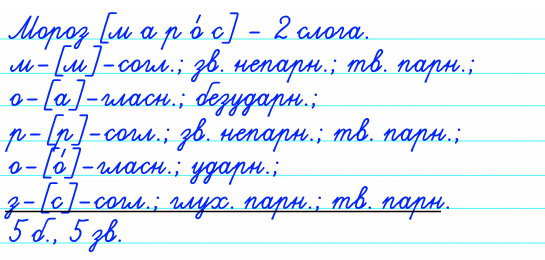 Мороз [м а р о́ с] - 2 слога.
м-[м]-согл.; зв. непарн.; тв. парн.;
о-[а]-гласн.; безударн.;
р-[р]-согл.; зв. непарн.; тв. парн.;
о-[о́]-гласн.; ударн.;
з-[с]-согл.; глух. парн.; тв. парн.
5 б., 5 зв.